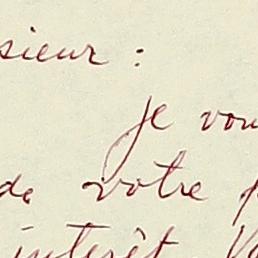 sieur :
Je vou
de votre
intérêt